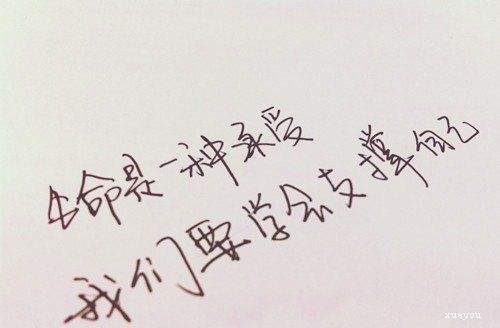 生命是一种承受
我们要学会支撑自己
xuayou